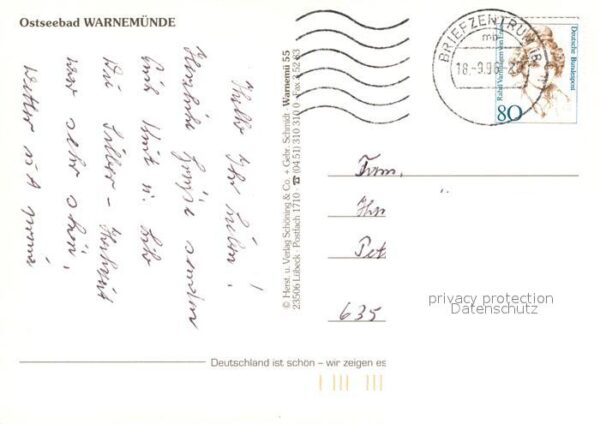 Ostseebad WARNEMÜNDE
Hallo Ihr Lieben!
Herzliche Grüße senden
Euch
Die Silber - Hochzeit
war sehr schön,
Wetter ist prima
© Herst. u. Verlag Schöning & Co. + Gebr. Schmidt Warnemü 55
23506 Lübeck · Postfach 1710 · ☎ (04 51) 310 310 0 · Fax
BRIEFZENTRUM 18
mb
18.-9.96
Deutsche Bundespost
Rahel Varnhagen von Ense
80
Fam.
635
privacy protection
Datenschutz
Deutschland ist schön – wir zeigen es